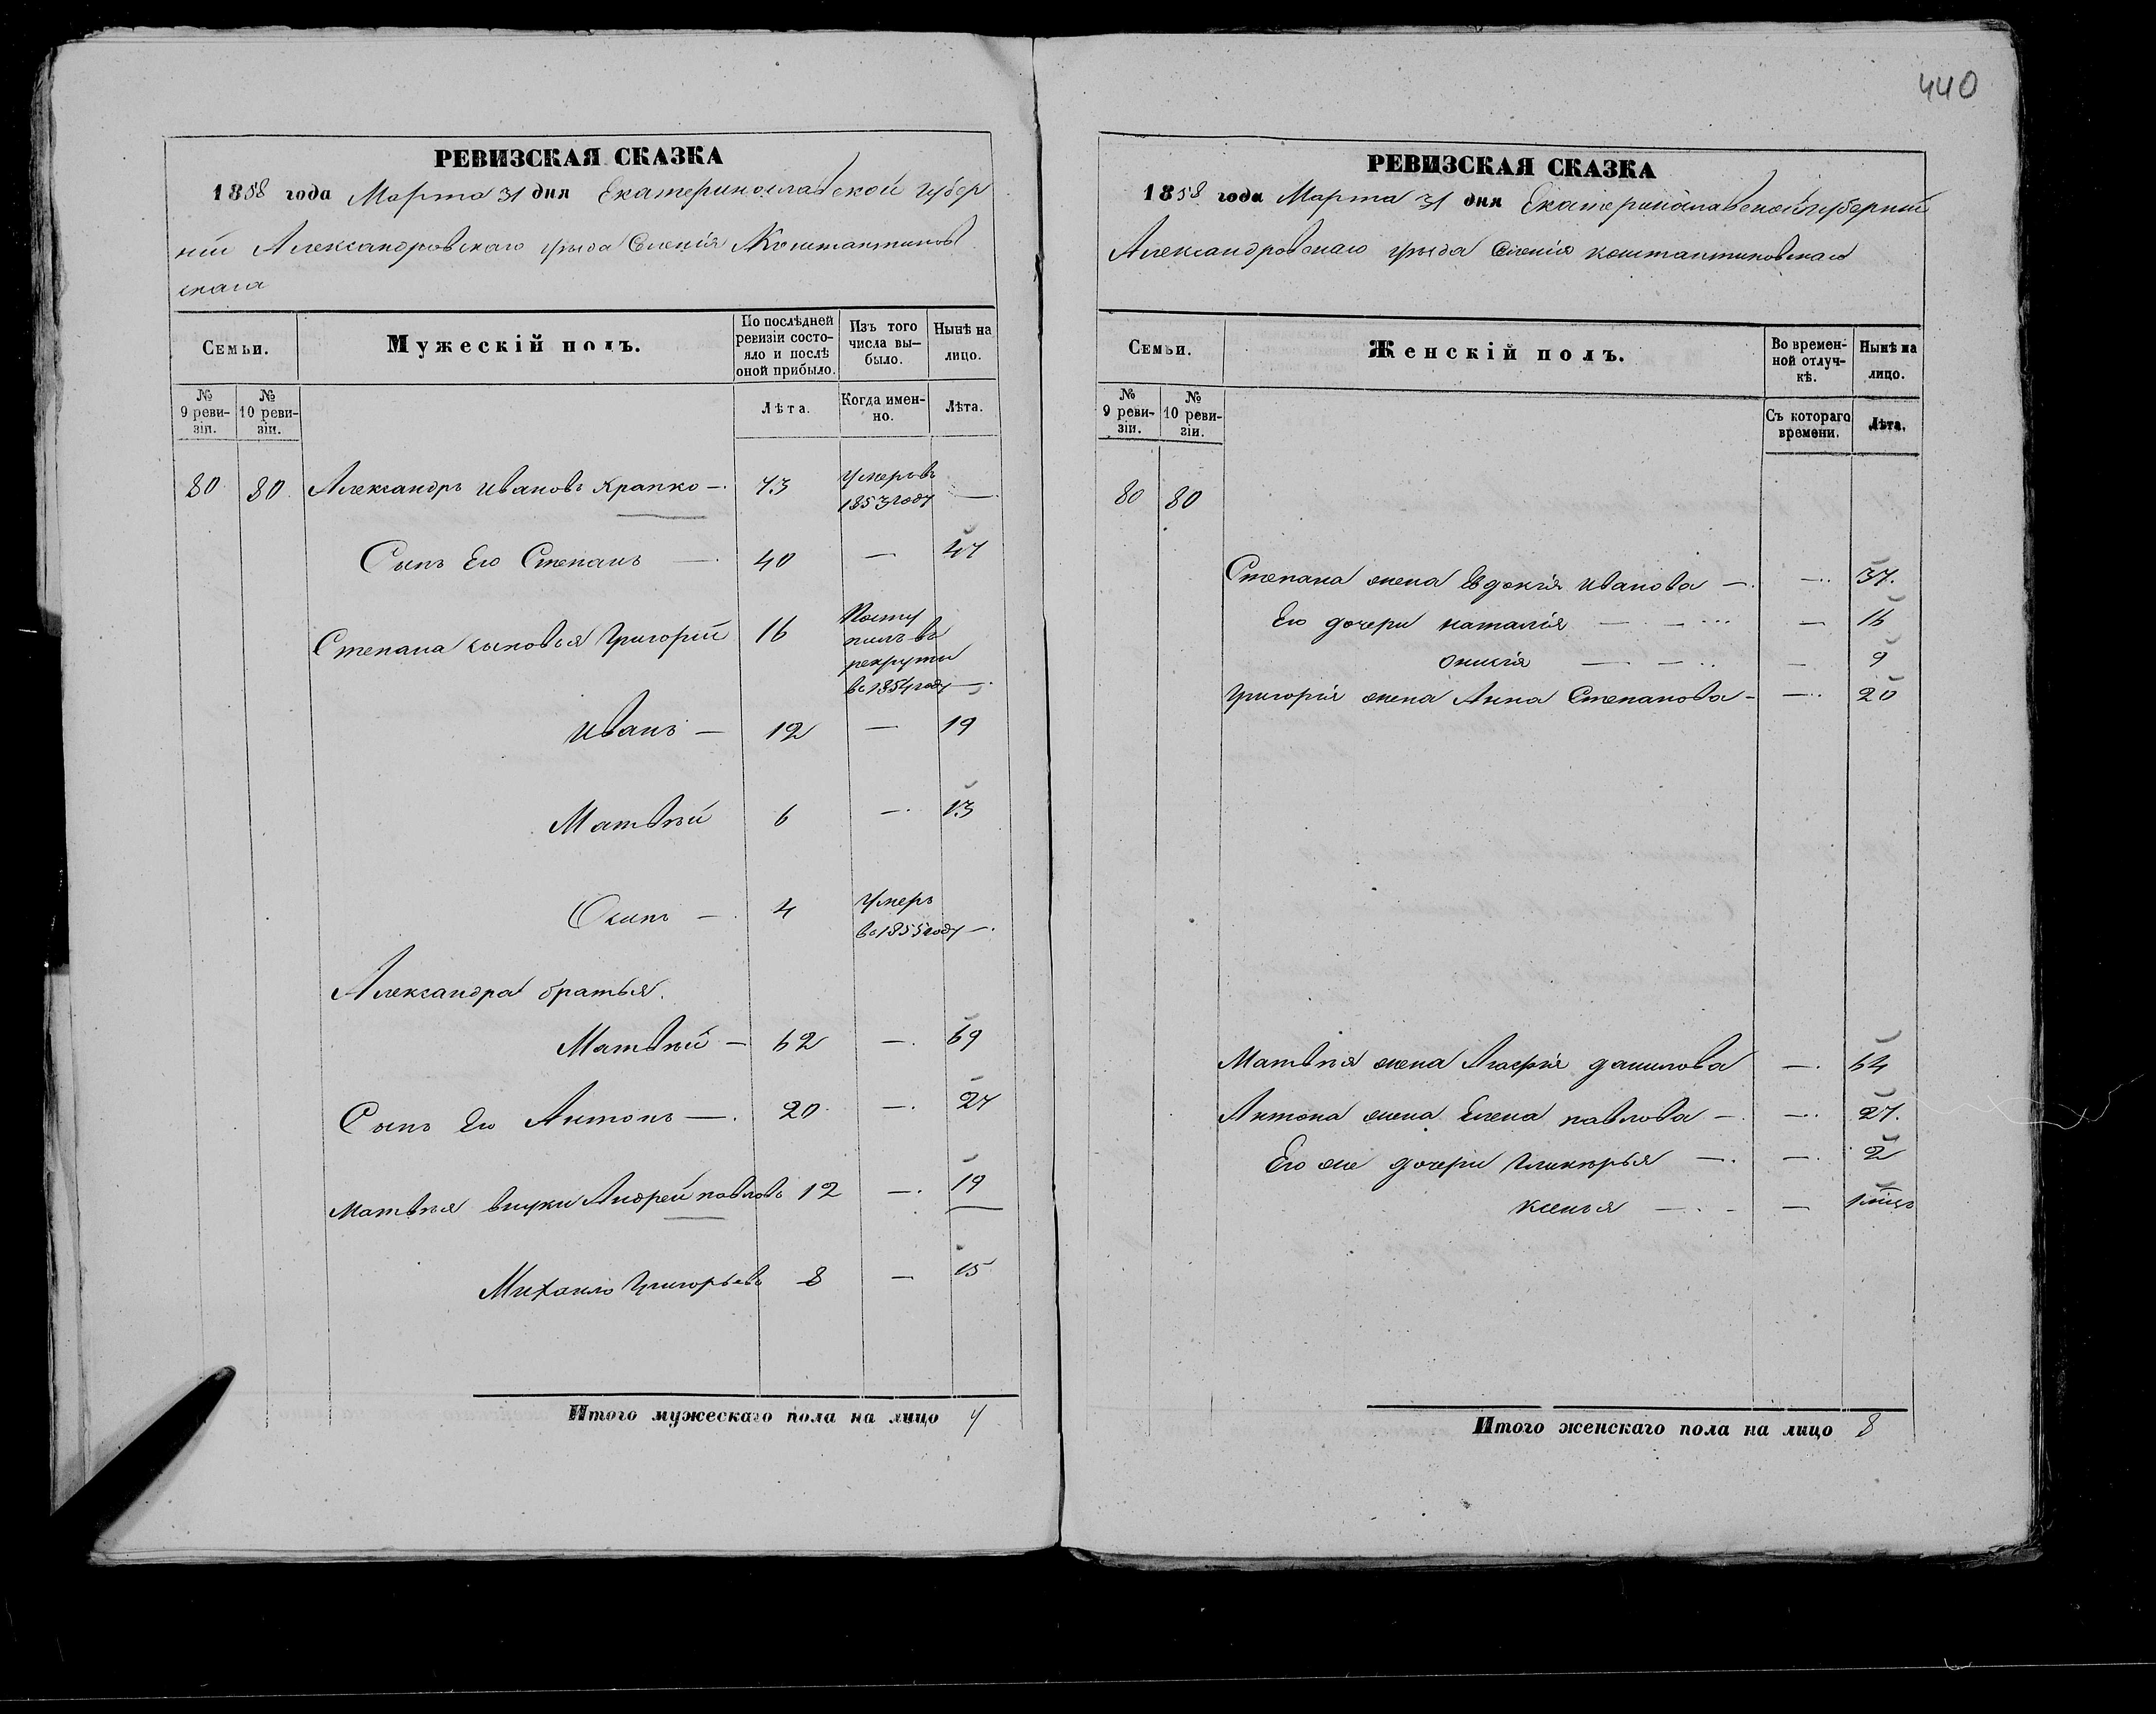 440
РЕВИЗСКАЯ СКАЗКА
1858 года Марта 31 дня Екатеринославской губер
ніи Александровскаго уѣзда Селенія Констактинов
скаго
Семьи.
Мужескій полъ.
По послѣдней ревизіи состо-
яло и послѣ
оной прибыло.
Изъ того
числа вы-
было.
Нынѣ на
лицо.
№ 9 реви-
зіи.
№ 10 реви-
зіи.
Лѣта.
Когда имен-
но.
Лѣта.
80 80 Александръ Ивановъ Крапко — 73 Умеръ въ
1853 году —
Сынъ Его Степанъ — 40 — 47
Степана сыновья Григорій 16 Посту
пилъ въ
рекруты
въ 1854 году —
Иванъ — 12 — 19
Матвѣй 6 — 13
Осипъ — 4 Умеръ
въ 1855 году —
Александра братья.
Матвѣй — 62 — 69
Сынъ Его Антонъ — 20 — 27
Матвѣя внуки Андрей Павловъ 12 — 19
Михаило Григорьевъ 8 — 15
Итого мужескаго пола на лицо 7
РЕВИЗСКАЯ СКАЗКА
1858 года Марта 31 дня Екатеринославской губерніи
Александровскаго уѣзда Селенія Константиновскаго
Семьи.
Женскій полъ.
Во времен-
ной отлуч-
кѣ.
Нынѣ на
лицо.
№ 9 реви-
зіи.
№ 10 реви-
зіи.
Съ котораго
времени.
Лѣта.
80 80
Степана жена Евдокія Иванова — — 37.
Его дочери Наталія — — 16
— 9
Григорія жена Анна Степанова — — 20
Матвѣя жена Агафія Данилова — 64
Антона жена Елена Павлова — — 27.
Его же дочери Гликерья — — 2
Ксенья — — 1 мѣць
Итого женскаго пола на лицо 8